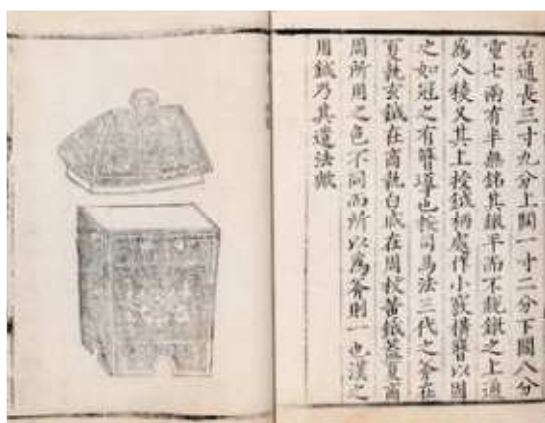 右通長三寸九分上闊一寸二分下闊八分
重七兩有半無銘其鐓平而不銳鐓之上通
為八稜又其上授鉞柄處作小竅横簪以固
之如冠之有簪導也按司馬法三代之斧在
夏執玄鉞在商執白戚在周杖黃鉞蓋夏商
周所用之色不同而所以為斧則一也漢之
用鉞乃其遺法歟